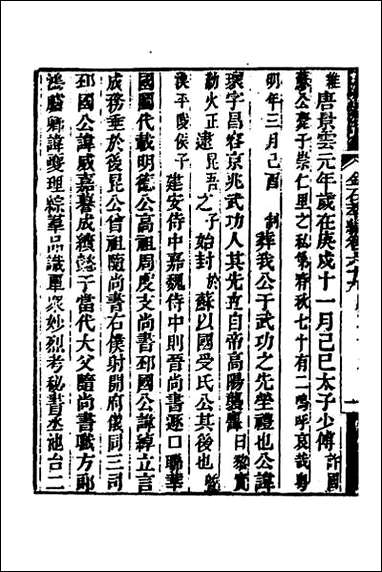 維唐景雲元年歲在庚戌十一月己巳太子少傅許國
蘇公薨于崇仁里之私第春秋七十有二嗚呼哀哉粵
明年三月己酉 制葬我公于武功之先塋禮也公諱
瓌字昌容京兆武功人其先直自帝高陽襲曰黎實
火正逮昆吾之子始封於蘇以國受氏公其後也
漢平陵侯子建安侍中嘉魏侍中則晉尚書逐口聯華
國圖代載明德公高祖周度支尚書邳國公諱綽立言
成務垂於後昆公曾祖隨尚書右僕射開府儀同三司
邳國公諱威嘉謩成績懿于當代大父隨尚書職方郎
鴻臚卿諱夔理綜羣品識單眾妙烈考秘書丞池台二
金石萃編卷六十九